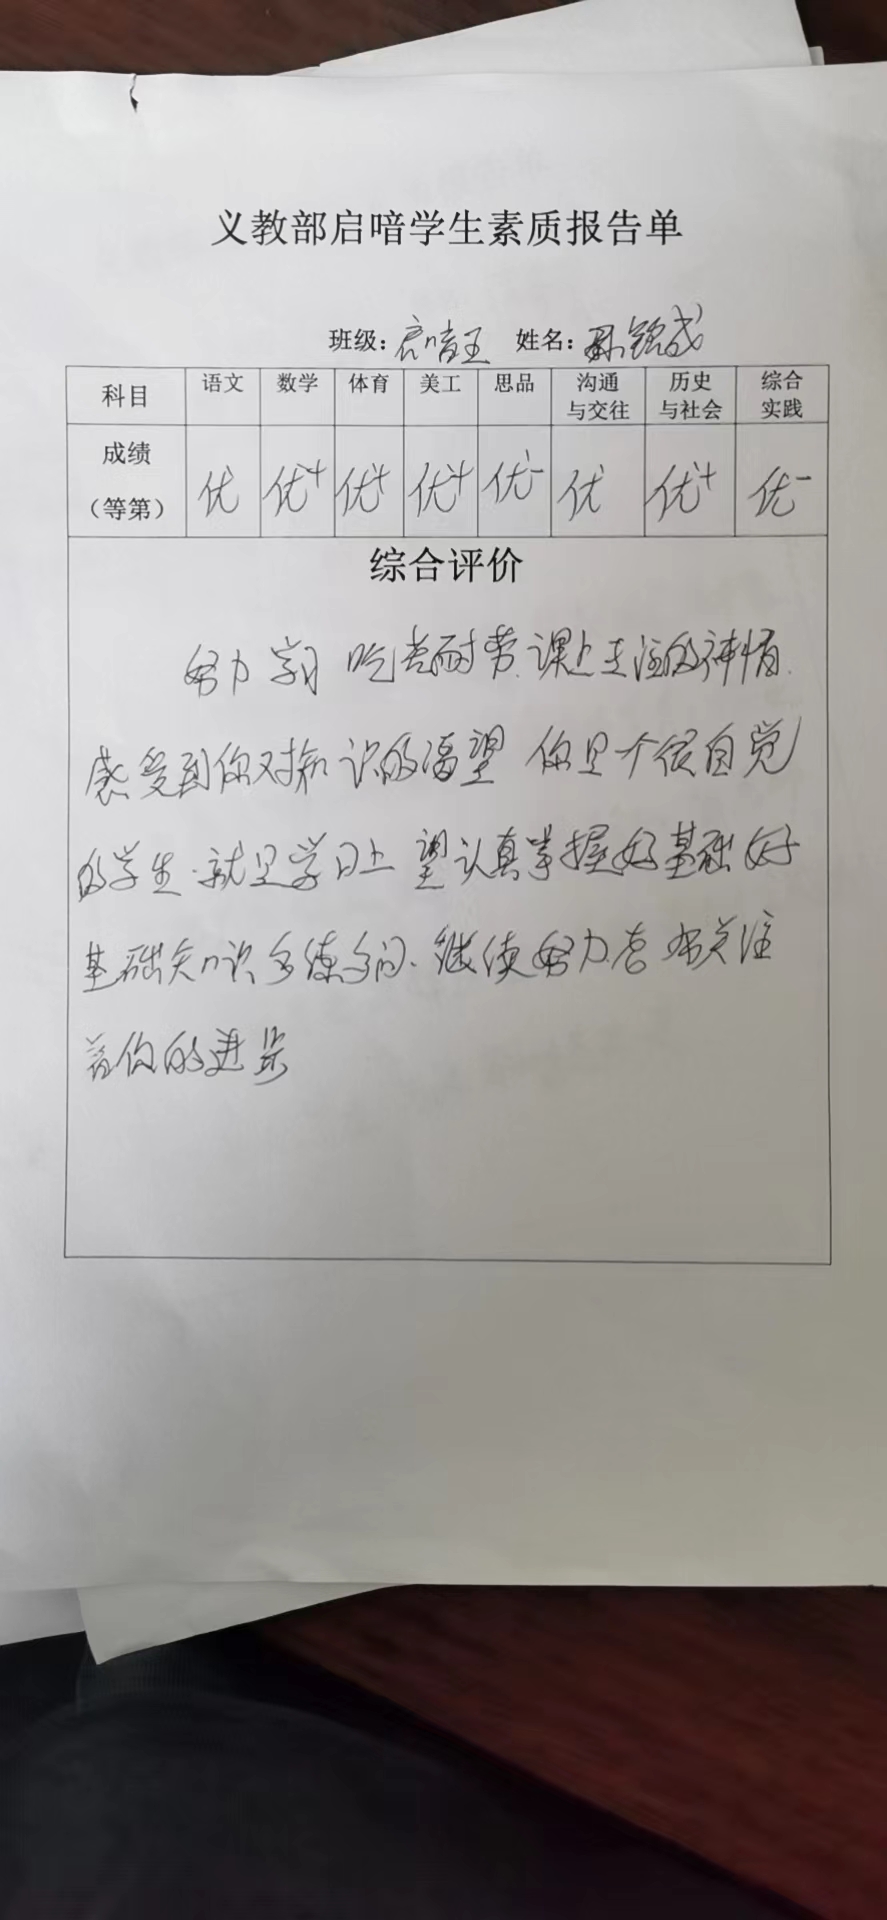 义教部启喑学生素质报告单
班级：启喑五 姓名：孙铭成
科目 语文 数学 体育 美工 思品 沟通与交往 历史与社会 综合实践
成绩（等第） 优 优+ 优+ 优+ 优- 优 优+ 优-
综合评价
努力学习 吃苦耐劳.课上专注的神情.
感受到你对知识的渴望 你是个很自觉
的学生.就是学习上 望认真掌握好基础 好
基础知识多练多问.继续努力.老师关注
着你的进步